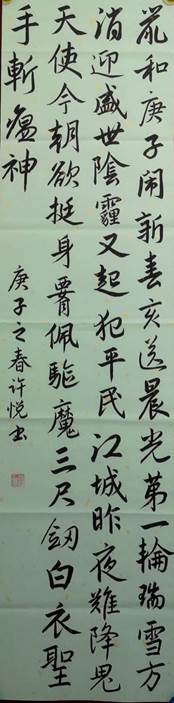 鼠和庚子闹新春亥送晨光第一輪瑞雪方
消迎盛世陰霾又起犯平民江城昨夜難降鬼
天使今朝欲挺身霄佩驅魔三尺劔白衣聖
手斬瘟神
庚子之春许悦书